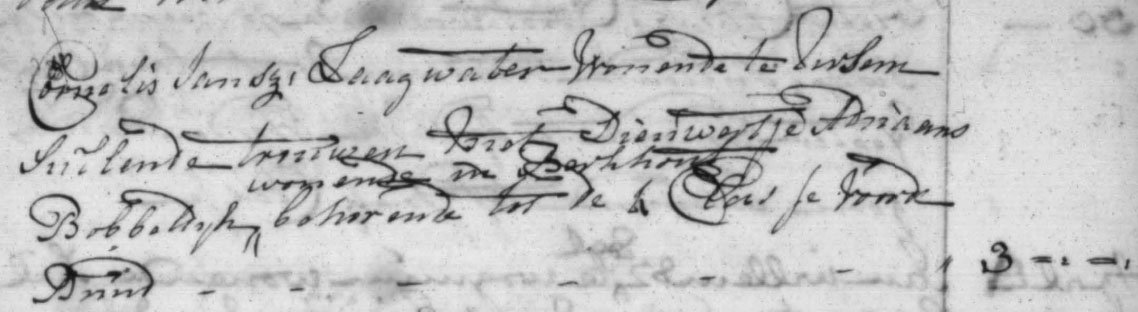 Cornelis Jansz, Laagwater Wonende te Ursem
Sullende trouwen Met Dieuwertje Adriaans
wonende in Berkhout
Bobbeldijk, behorende tot de 4 Clas je voor
Bruid - - - - - - , 3 -. -.